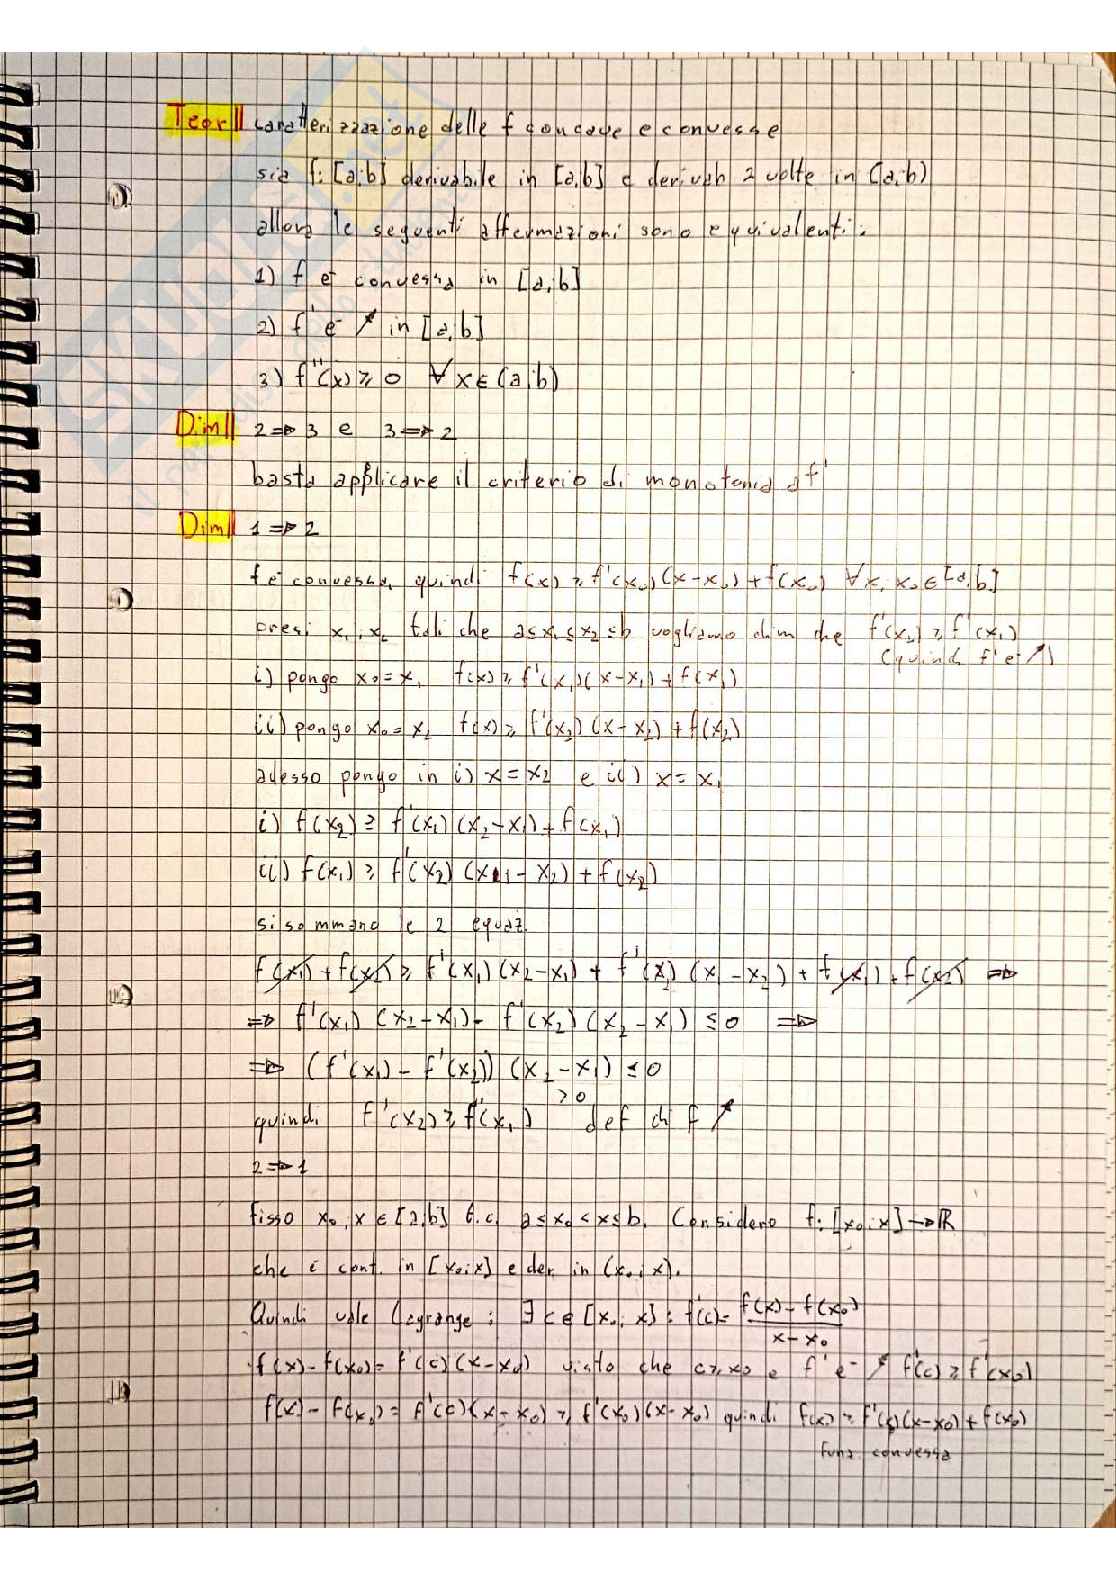 Teor caratterizzazione delle f concave e convesse
sia f: [a;b] derivabile in [a;b] e derivab 2 volte in (a;b)
allora le seguenti affermazioni sono equivalenti:
1) f e' convessa in [a;b]
2) f' e' ↗ in [a;b]
3) f''(x) ≥ 0 ∀ x ∈ (a;b)
Dim 2 ⇒ 3 e 3 ⇒ 2
basta applicare il criterio di monotonia a f'
Dim 1 ⇒ 2
f e' convessa, quindi f(x) ≥ f'(x₀)(x-x₀) + f(x₀) ∀ x, x₀ ∈ [a;b]
presi x₁, x₂ tali che a ≤ x₁ ≤ x₂ ≤ b vogliamo dim che f'(x₂) ≥ f'(x₁)
(quindi f' e' ↗)
i) pongo x₀ = x₁ f(x) ≥ f'(x₁)(x-x₁) + f(x₁)
ii) pongo x₀ = x₂ f(x) ≥ f'(x₂)(x-x₂) + f(x₂)
adesso pongo in i) x = x₂ e ii) x = x₁
i) f(x₂) ≥ f'(x₁)(x₂-x₁) + f(x₁)
ii) f(x₁) ≥ f'(x₂)(x₁-x₂) + f(x₂)
si sommano le 2 equaz.
f(x₁) + f(x₂) ≥ f'(x₁)(x₂-x₁) + f'(x₂)(x₁-x₂) + f(x₁) + f(x₂) ⇒
⇒ f'(x₁)(x₂-x₁) - f'(x₂)(x₂-x₁) ≤ 0 ⇒
⇒ (f'(x₁) - f'(x₂))(x₂-x₁) ≤ 0
>0
quindi f'(x₂) ≥ f'(x₁) def di f ↗
2 ⇒ 1
fisso x₀, x ∈ [a;b] t.c. a ≤ x₀ < x ≤ b. Considero f: [x₀;x] → ℝ
che è cont. in [x₀;x] e der. in (x₀;x).
Quindi vale Lagrange: ∃ c ∈ [x₀;x] : f'(c) = f(x) - f(x₀) / x - x₀
f(x) - f(x₀) = f'(c)(x-x₀) visto che c ≥ x₀ e f' e' ↗ f'(c) ≥ f'(x₀)
f(x) - f(x₀) = f'(c)(x-x₀) ≥ f'(x₀)(x-x₀) quindi f(x) ≥ f'(x₀)(x-x₀) + f(x₀)
funz. convessa